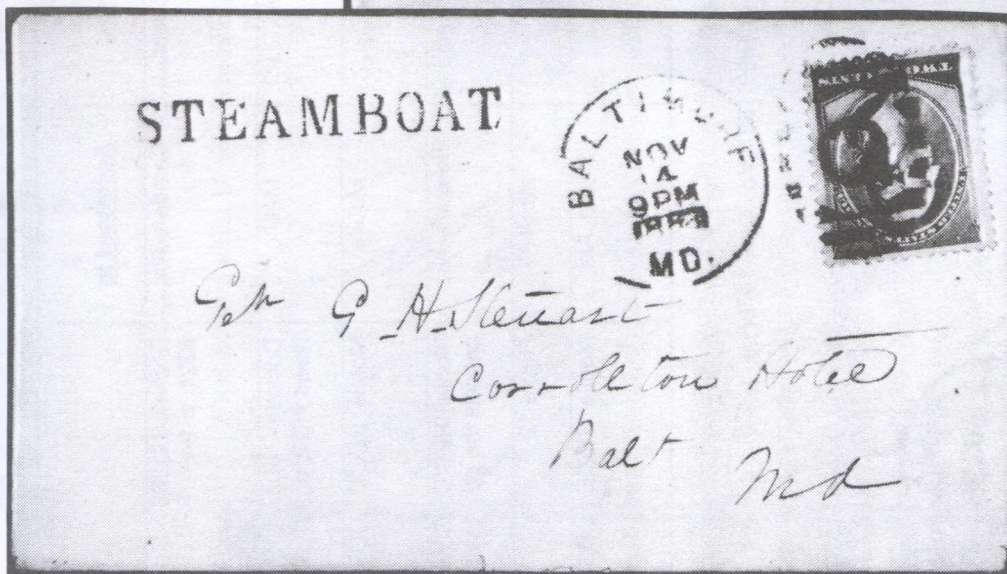 STEAMBOAT
BALTIMORE
NOV
14
9PM
MD.
Gen G. H. Steuart
Carrollton Hotel
Balt Md